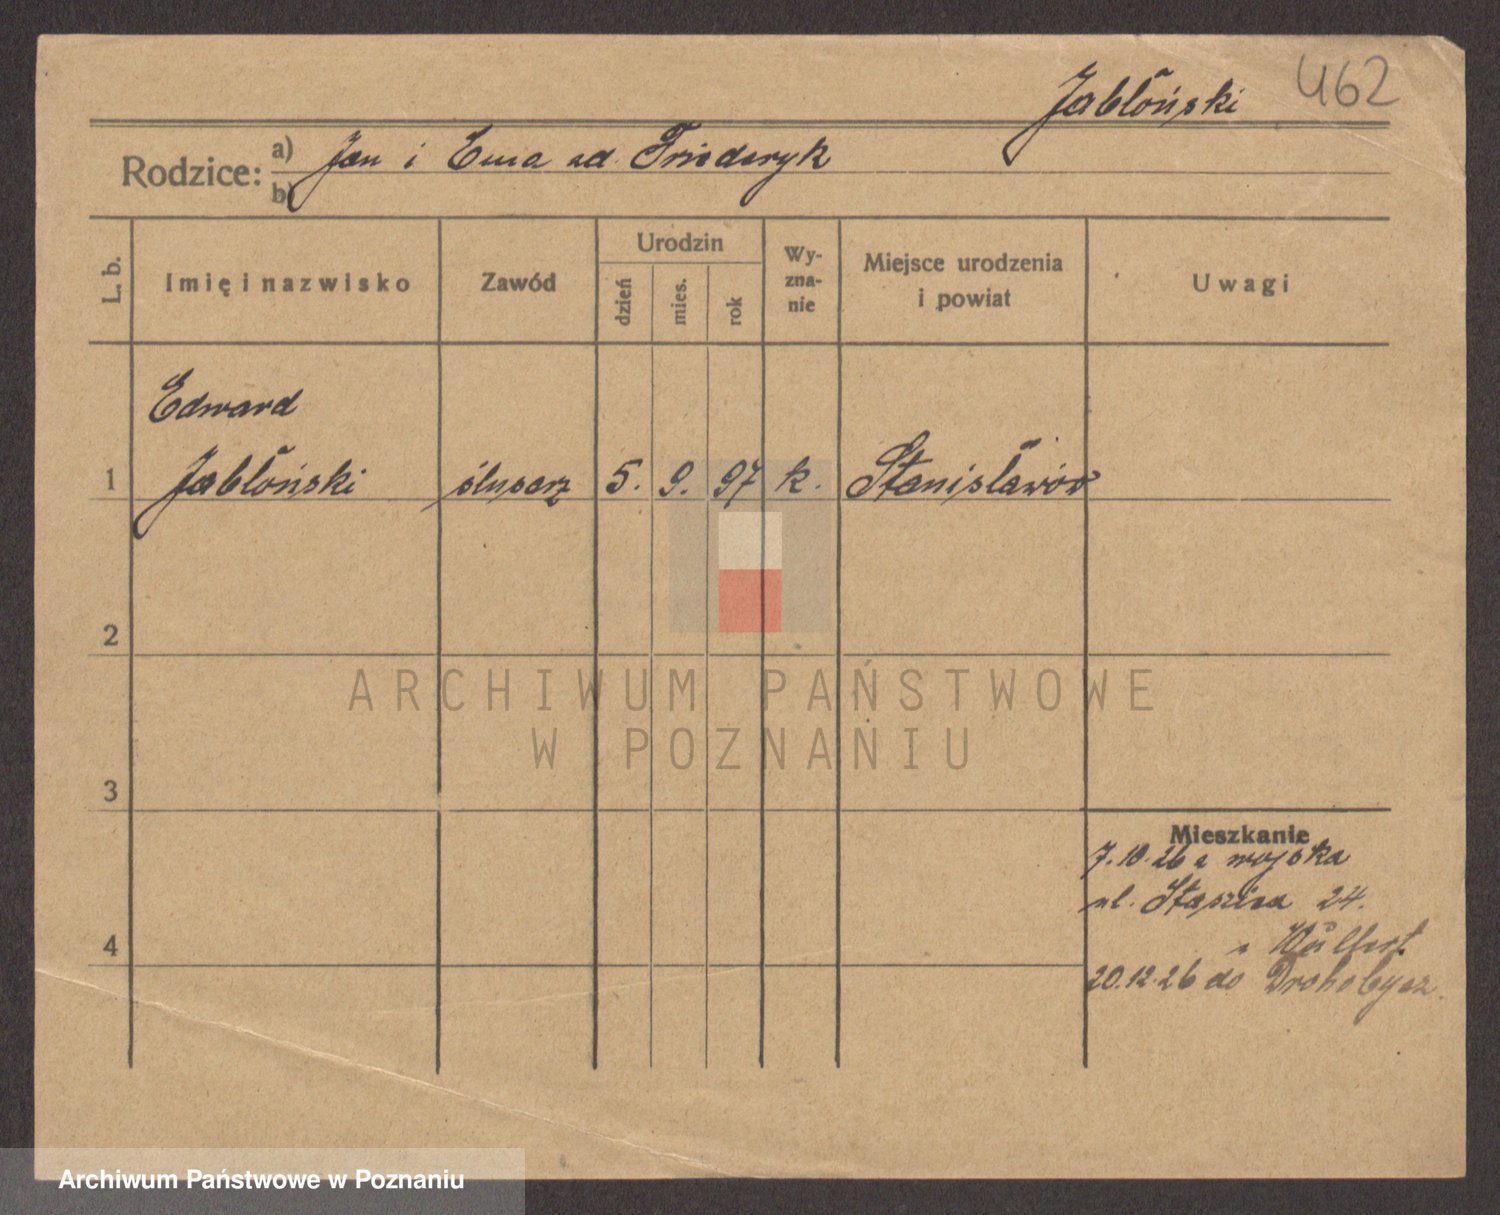 Jabłoński 462
Rodzice: a) Jan i Ewa zd. Friederyk
b)
L. b.
Imię i nazwisko
Zawód
Urodzin
dzień
mies.
rok
Wy-
zna-
nie
Miejsce urodzenia
i powiat
Uwagi
Edward
1 Jabłoński ślusarz 5. 9. 97 k. Stanisławów
2
3
4
Mieszkanie
7.10.26 z wojska
ul. Staszica 24.
20.12.26 do Drohobycz.
ARCHIWUM PAŃSTWOWE
W POZNANIU
Archiwum Państwowe w Poznaniu